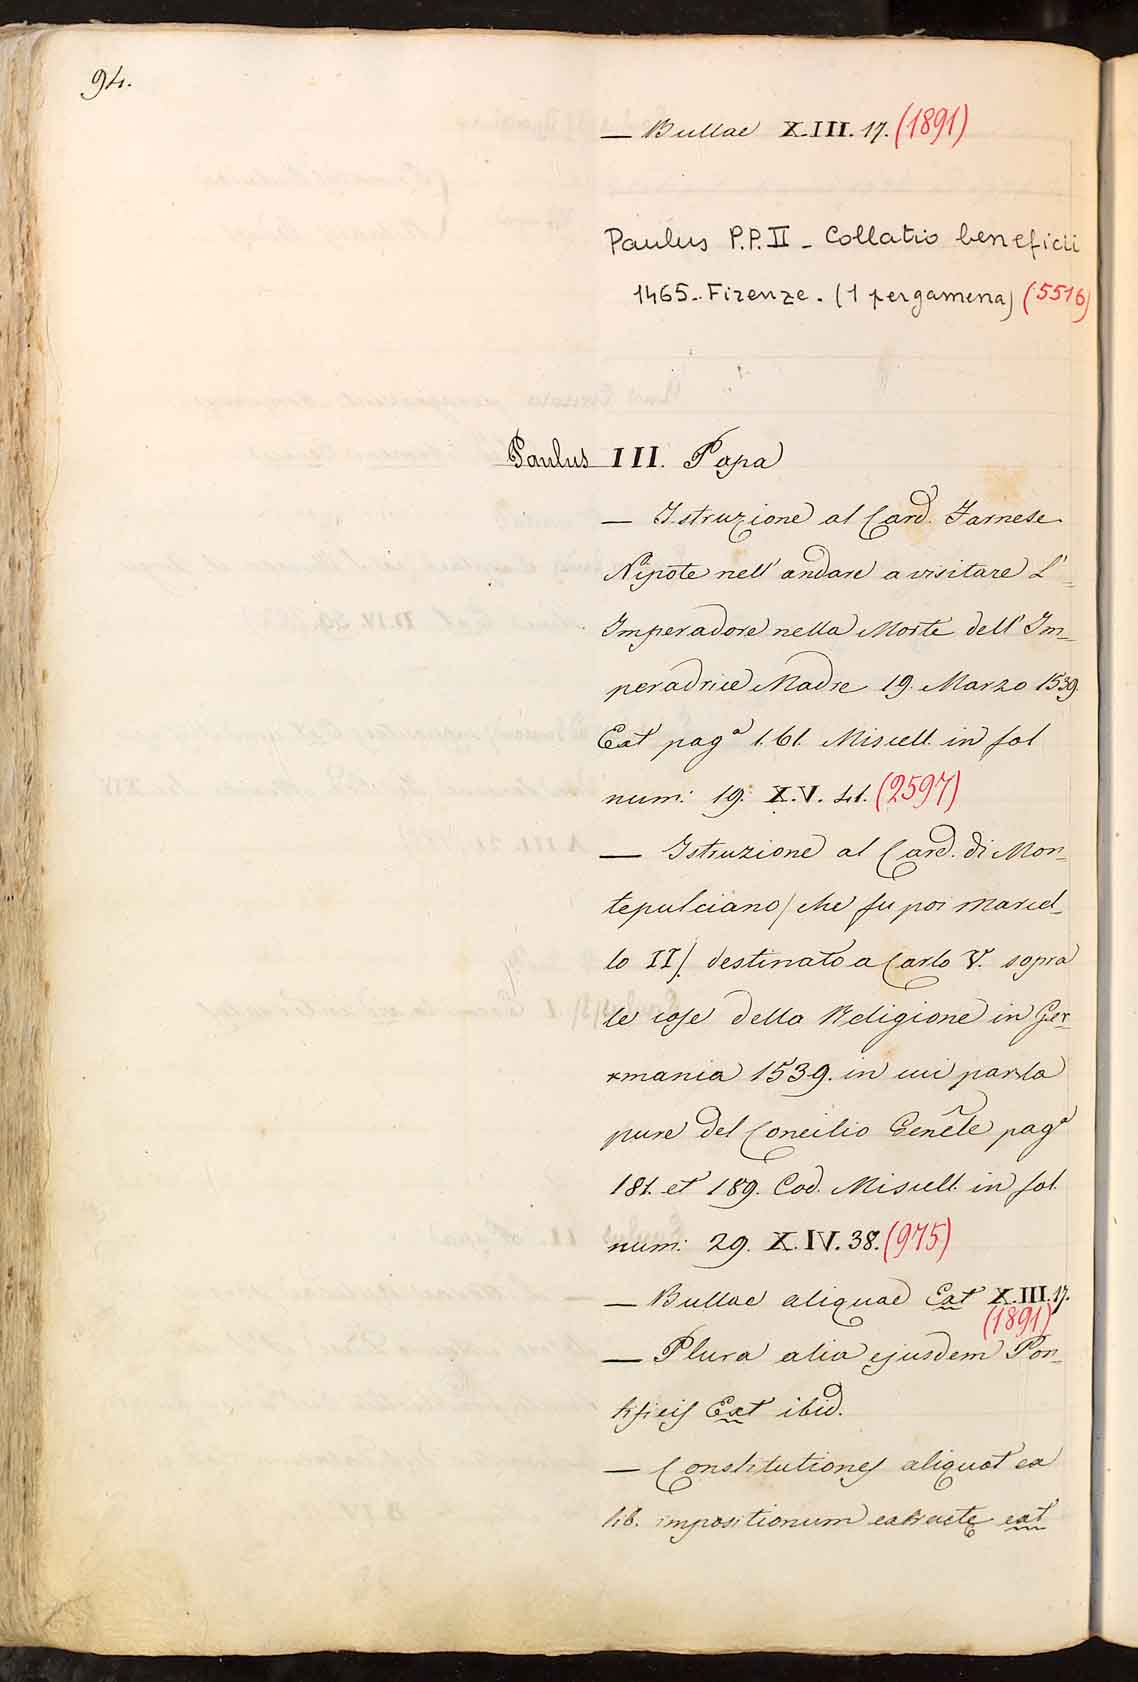 94.
— Bullae X.III.17. (1891)
Paulus P.P. II - Collatio beneficii
1465.. Firenze. (1 pergamena) (5516)
Paulus III. Papa
— Istruzione al Card. Farnese
Nipote nell' andare a visitare L'
Imperadore nella Morte dell' Im=
peradrice Madre 19. Marzo 1539.
Ext pag.ª 161. Miscell. in fol
num: 19. X.V. 41. (2597)
— Istruzione al Card. di Mon=
tepulciano / che fu poi Marcel=
lo II / destinato a Carlo V. sopra
le cose della Religione in Ger=
rmania 1539. in cui parla
pure del Concilio Gen̂le pag.ª
181. et 189. Cod. Miscell. in fol.
num: 29. X.IV.38. (975)
— Bullae aliquae Ext X.III.17.
(1891)
— Plura alia ejusdem Pon=
tificis Ext ibid.
— Constitutiones aliquot ex
lib. impositionum extractę ext